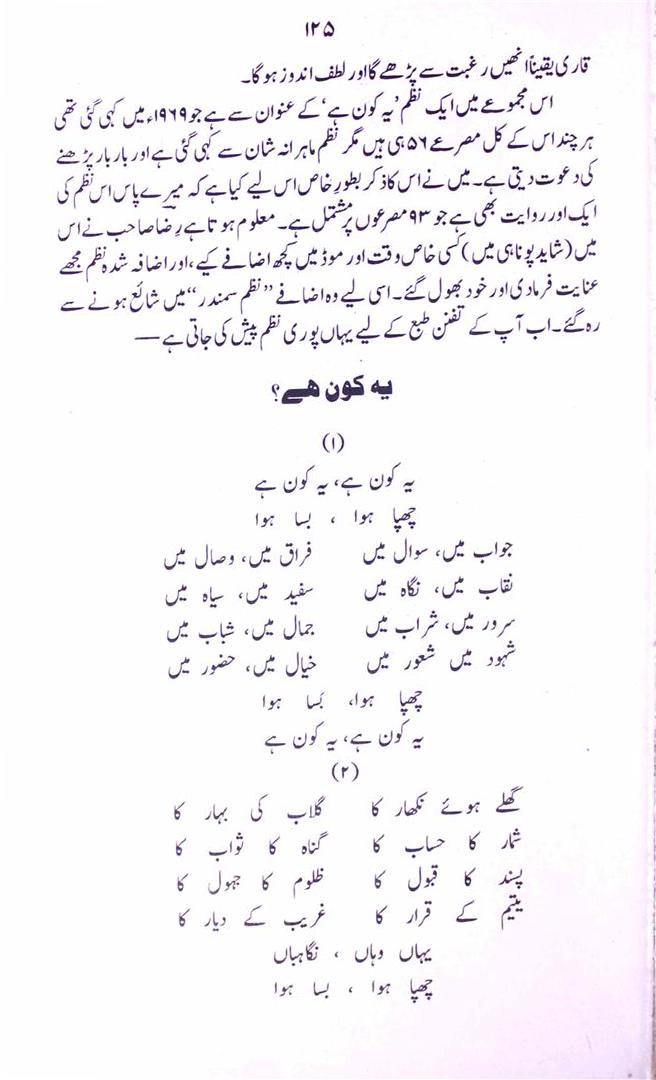 ۱۲۵
قاری یقیناً انھیں رغبت سے پڑھے گا اور لطف اندوز ہوگا۔
اس مجموعے میں ایک نظم ’یہ کون ہے‘ کے عنوان سے ہے جو ۱۹۶۹ء میں کہی گئی تھی
ہر چند اس کے کل مصرعے ۵۶ ہی ہیں مگر نظم ماہرانہ شان سے کہی گئی ہے اور بار بار پڑھنے
کی دعوت دیتی ہے۔ میں نے اس کا ذکر بطورِ خاص اس لیے کیا ہے کہ میرے پاس اس نظم کی
ایک اور روایت بھی ہے جو ۹۳ مصرعوں پر مشتمل ہے۔ معلوم ہوتا ہے رضا صاحب نے اس
میں (شاید پونا ہی میں) کسی خاص وقت اور موڈ میں کچھ اضافے کیے، اور اضافہ شدہ نظم مجھے
عنایت فرمادی اور خود بھول گئے۔ اسی لیے وہ اضافے ’’نظم سمندر‘‘ میں شائع ہونے سے
رہ گئے۔ اب آپ کے تفننِ طبع کے لیے یہاں پوری نظم پیش کی جاتی ہے —
یہ کون ہے؟
(۱)
یہ کون ہے، یہ کون ہے
چھپا ہوا ، بسا ہوا
جواب میں، سوال میں فراق میں، وصال میں
نقاب میں، نگاہ میں سفید میں، سیاہ میں
سرور میں، شراب میں جمال میں، شباب میں
شہود میں شعور میں خیال میں، حضور میں
چھپا ہوا، بَسا ہوا
یہ کون ہے، یہ کون ہے
(۲)
گھلے ہوئے نکھار کا گلاب کی بہار کا
شمار کا حساب کا گناہ کا ثواب کا
پسند کا قبول کا ظلوم کا جہول کا
یتیم کے قرار کا غریب کے دیار کا
یہاں وہاں ، نگاہباں
چھپا ہوا ، بسا ہوا